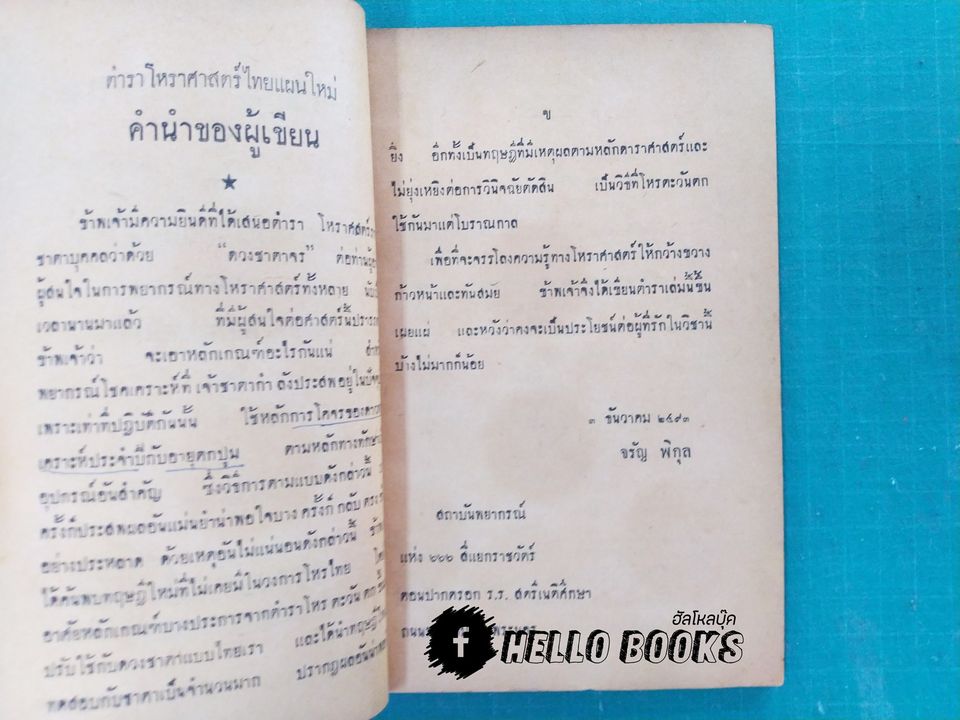 ตำราโหราศาสตร์ไทยแผนใหม่
คำนำของผู้เขียน
★
ข้าพเจ้ามีความยินดีที่ได้เสนอตำรา โหราศาสตร์
ชาตาบุคคลว่าด้วย "ดวงชาตาจร" ต่อท่าน
ผู้สนใจในการพยากรณ์ทางโหราศาสตร์ทั้งหลาย
เวลานานมาแล้ว ที่มีผู้สนใจต่อศาสตร์นี้
ข้าพเจ้าว่า จะเอาหลักเกณฑ์อะไรกันแน่
พยากรณ์โชคเคราะห์ที่ เจ้าชาตากำ ลังประสพอยู่ใน
เพราะเท่าที่ปฏิบัติกันนั้น ใช้หลักการโคจรของดาว
เคราะห์ประจำปีกับอายุตกปูน ตามหลักทางทักษา
อุปกรณ์อันสำคัญ ซึ่งวิธีการตามแบบดังกล่าวนี้
ครั้งก็ประสพผลอันแม่นยำน่าพอใจบาง ครั้งก็ กลับ ตรง
อย่างประหลาด ด้วยเหตุอันไม่แน่นอนดังกล่าวนี้
ได้ค้นพบทฤษฎีใหม่ที่ไม่เคยมีในวงการโหรไทย
อาศัยหลักเกณฑ์บางประการจากตำราโหร ตะวัน ตก
ปรับใช้กับดวงชาตาแบบไทยเรา และได้นำทฤษฎี
ทดสอบกับชาตาเป็นจำนวนมาก ปรากฏผลอัน
ข
ยิ่ง อีกทั้งเป็นทฤษฎีที่มีเหตุผลตามหลักดาราศาสตร์และ
ไม่ยุ่งเหยิงต่อการวินิจฉัยตัดสิน เป็นวิธีที่โหรตะวันตก
ใช้กันมาแต่โบราณกาล
เพื่อที่จะจรรโลงความรู้ทางโหราศาสตร์ให้กว้างขวาง
ก้าวหน้าและทันสมัย ข้าพเจ้าจึงได้เขียนตำราเล่มนี้ขึ้น
เผยแผ่ และหวังว่าคงจะเป็นประโยชน์ต่อผู้ที่รักในวิชานี้
บ้างไม่มากก็น้อย
๓ ธันวาคม ๒๔๙๓
จรัญ พิกุล
สถาบันพยากรณ์
แห่ง ๖๖๖ สี่แยกราชวัตร์
ตอนปากตรอก ร.ร. สตรีเนติศึกษา
ถนน พระนคร
ฮัลโหลบุ๊ค
f HELLO BOOKS